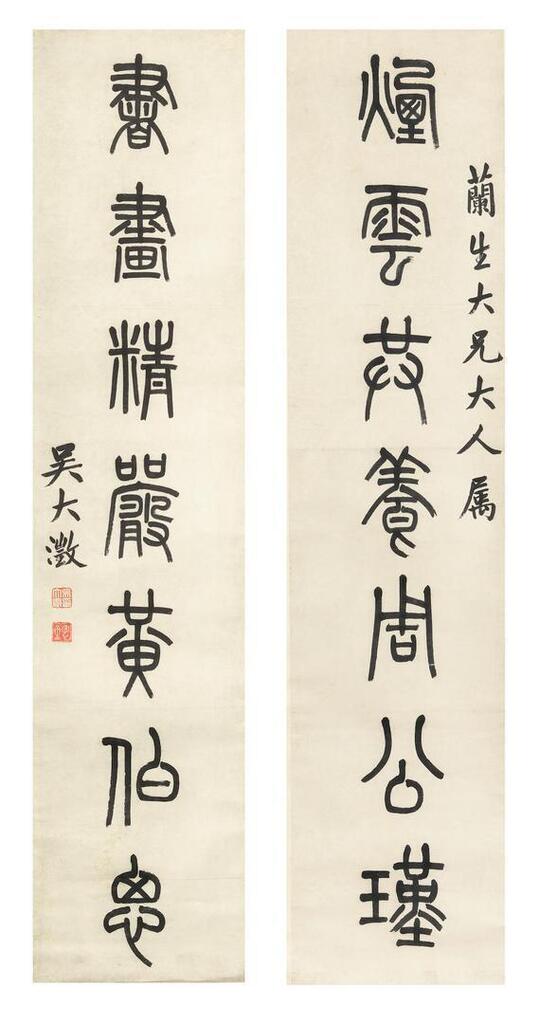 蘭生大兄大人属
煙雲共養周公瑾
書畫精嚴黃伯思
吳大澂